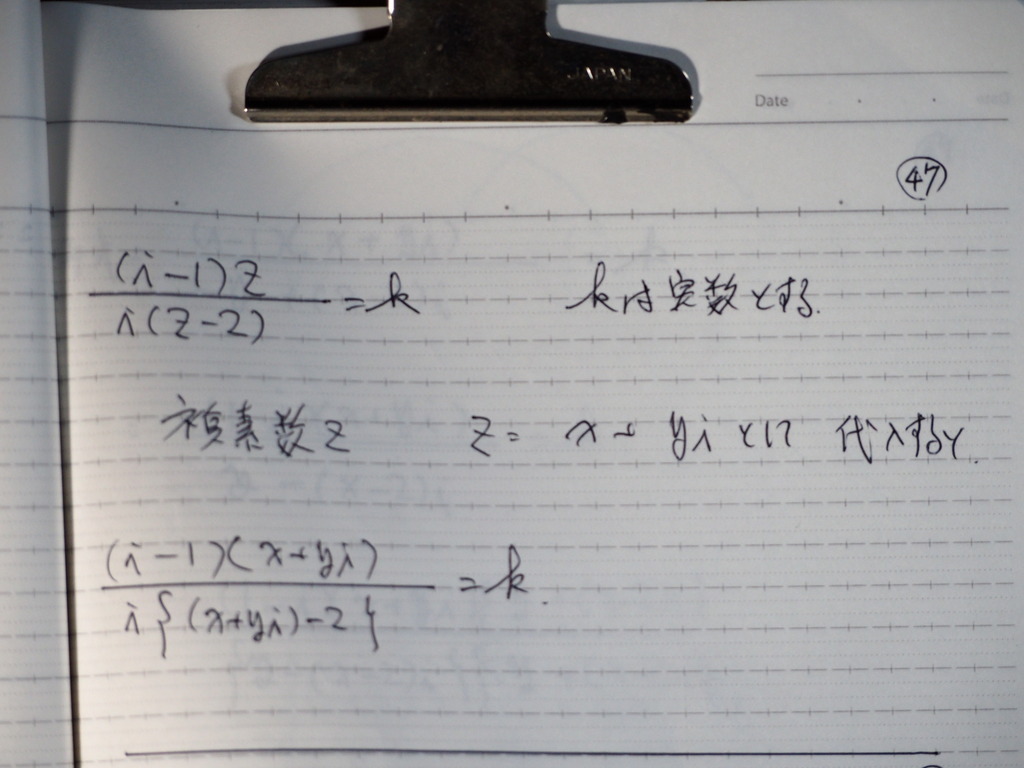 JAPAN
Date
㊼
(i-1)z / i(z-2) = k  kは実数とする.
複素数z  z = x + yi として 代入すると.
(i-1)(x+yi) / i{(x+yi)-2} = k.